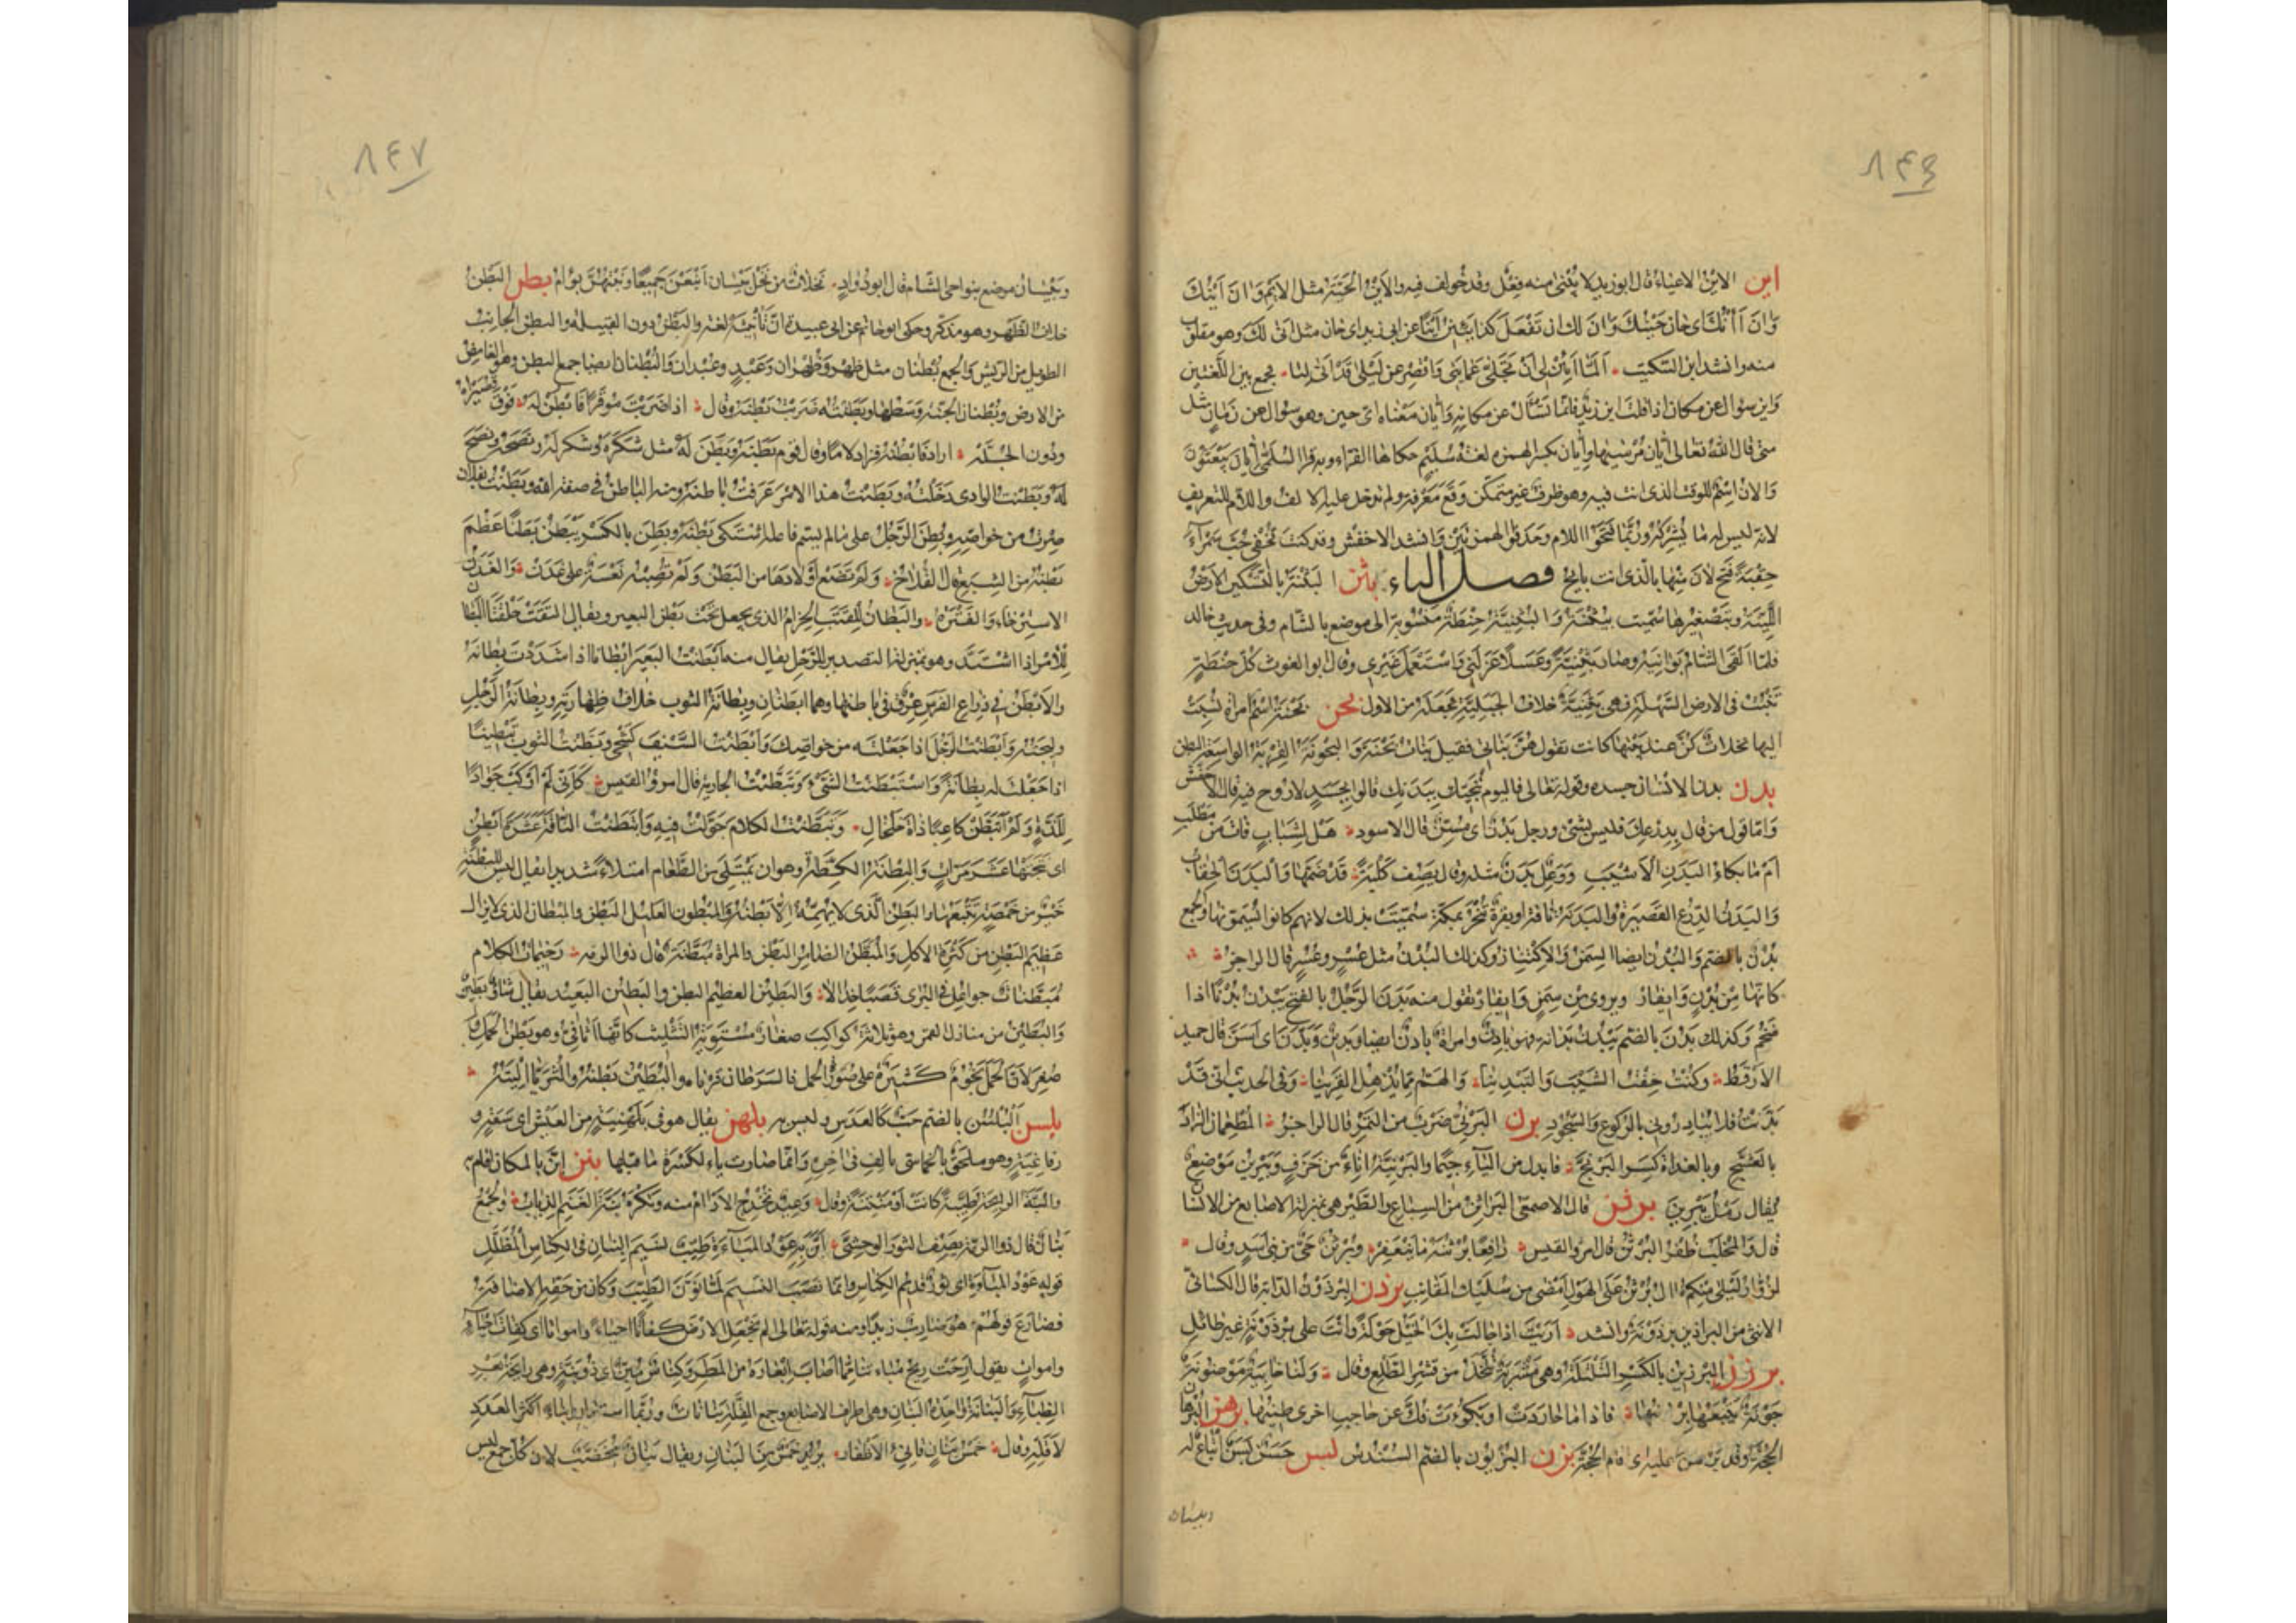 ٨٤٦
اين الاين الاعياء قال ابو زيد لا يبنى منه فعل وقد خولف فيه والاين الحية مثل الايم وآن اينك
وآن آنك اى حان حينك وآن لك ان تفعل كذا يئين اينا عن ابى زيد اى حان مثل انى لك وهو مقلوب
منه وانشد ابن السكيت ألما يئن لى ان تجلى عمايتى واقصر عن ليلى بلى قد انى ليا فجمع بين اللغتين
واين سؤال عن مكان اذا قلت اين زيد فانما تسأل عن مكانه وايان معناه اى حين وهو سؤال عن زمان مثل
متى قال الله تعالى ايان مرسيها وايان بكسر الهمزه لغة سليم حكاها الفراء وبه قرا السلمى ايان يبعثون
والان اسم للوقت الذى انت فيه وهو ظرف غير متمكن وقع معرفة ولم تدخل عليه الالف واللام للتعريف
لانه ليس له ما يشركه وربما فتحوا اللام وحذفوا الهمزتين وانشد الاخفش وقد كنت تخفى حب سمراء
حقبة فبح لان منها بالذى انت بايح فصل الباء بثن البثنة بالتسكين الارض
اللينة وبتصغيرها سميت بثينة والبثنية حنطة منسوبة الى موضع بالشام وفى حديث خالد
فلما القى الشام بوانيه وصار بثنية وعسلا عزلنى واستعمل غيرى وقال ابو الغوث كل حنطة
تنبت فى الارض السهلة فهى بثنية خلاف الجبلية فجعله من الاول بحن بحنة اسم امراة نسبت
اليها نخلات كن عند بيتها كانت تقول هن بناتى فقيل بنات بحنة والبحونة القربة الواسعة البطن
بدن بدن الانسان جسده وقوله تعالى فاليوم ننجيك ببدنك قالوا بجسد لا روح فيه قال الاخفش
واما قول من قال بدرعك فليس بشئ ورجل بدن اى مسن قال الاسود هل لشباب فات من مطلب
ام ما بكاء البدن الاشيب ووعل بدن مثله وقال يصف كلبة قد ضمها والبدن الحقاب
والبدن الدرع القصيرة والبدنة ناقة او بقرة تنحر بمكة سميت بذلك لانهم كانوا يسمنونها والجمع
بدن بالضم والبدن ايضا السمن والاكتناز وكذلك البدن مثل عسر وعسر قال الراجز
كانها من بدن وايفار ويروى من سمن وايفار تقول منه بدن الرجل بالفتح يبدن بدنا اذا
ضخم وكذلك بدن بالضم يبدن بدانه فهو بادن وامراة بادن ايضا وبدين وبدن اى اسن قال حميد
الارقط وكنت خفت الشيب والتبدينا والهم مما يذهل القرينا وفى الحديث انى قد
بدنت فلا تبادرونى بالركوع والسجود برن البرنى ضرب من التمر قال الراجز المطعمان
بالعشج وبالغداة كسر البرنج فابدل من الياء جيما والبرنية اناء من خزف ويبرين موضع
يقال رمل يبرين برثن قال الاصمعى البراثن من السباع والطير هى بمنزلة الاصابع من الانسان
قال والمخلب ظفر البرثن قال امرؤ القيس رافعا برثنه ما ينعفر وبرثن حى من بنى اسد وقال
لزوار ليلى منكم ال برثن على الهول امضى من سليك المقانب برذن البرذون الدابة قال الكسائى
الانثى من البراذين برذونة وانشد اريت اذا جالت بك الخيل جولة وانت على برذونة غير طائل
برزن البرزين بالكسر التلتلة وهى مشربة تتخذ من قشر الطلع وقال ولنا خابية موضونة
جونة يتبعها برزينها فاذا ما حاردت او بكؤت فك عن حاجب اخرى طينها برهن البرهان
الحجة وقد برهن عليه اى اقام الحجة بزن البزيون بالضم السندس بسن حسن بسن اتباع له
وبيسان
٨٤٧
وبيسان موضع بنواحى الشام قال ابو دواد نخلات من نخل بيسان اينعن جميعا ونبتهن توام بطن البطن
خلاف الظهر وهو مذكر وحكى ابو حاتم عن ابى عبيدة ان تانيثه لغة والبطن دون القبيلة والبطن الجانب
الطويل من الريش والجمع بطنان مثل ظهر وظهران وعبد وعبدان والبطنان ايضا جمع البطن وهو الغامض
من الارض وبطنان الجنة وسطها وبطنته ضربت بطنه وقال اذا ضربت موقرا فابطن له فوق قصيراه
ودون الجله اراد فابطنه فزاد لاما وقال قوم بطنه وبطن له مثل شكره وشكر له ونصحه ونصح
له وبطنت الوادى دخلته وبطنت هذا الامر عرفت باطنه ومنه الباطن فى صفة الله وبطنت بفلان
صرت من خواصه وبطن الرجل على ما لم يسم فاعله اشتكى بطنه وبطن بالكسر يبطن بطنا عظم
بطنه من الشبع قال القلاخ ولم تضع اولادها من البطن ولم تصبه نعسة على غدن والغدن
الاسترخاء والفترة والبطان للقتب الحزام الذى يجعل تحت بطن البعير ويقال التقت حلقتا البطان
للامر اذا اشتد وهو بمنزلة التصدير للرحل يقال منه ابطنت البعير ابطانا اذا شددت بطانه
والابطن فى ذراع الفرس عرق فى باطنها وهما ابطنان وبطانة الثوب خلاف ظهارته وبطانة الرجل
وليجته وابطنت الرجل اذا جعلته من خواصك وابطنت السيف كشحى وبطنت الثوب تبطينا
اذا جعلت له بطانة واستبطنت الشئ وتبطنت الجارية قال امرؤ القيس كانى لم اركب جوادا
للذة ولم اتبطن كاعبا ذات خلخال وتبطنت الكلام جولت فيه وابتطنت الناقة عشرة ابطن
اى نتجتها عشر مرات والبطنة الكظة وهو ان يمتلى من الطعام امتلاء شديدا يقال ليس للبطنة
خير من خمصة تتبعها والبطن الذى لا يهمه الا بطنه والمبطون العليل البطن والمبطان الذى لا يزال
عظيم البطن من كثرة الاكل والمبطن الضامر البطن والمراة مبطنة قال ذو الرمه رخيمات الكلام
مبطنات جواعل فى البرى قصبا خدالا والبطين العظيم البطن والبطين البعيد يقال شاو بطين
والبطين من منازل القمر وهو ثلاثة كواكب صغار مستوية التثليث كانها اثافى وهو بطن الحمل و
صغر لان الحمل نجوم كثيرة على صورة الحمل فالشرطان قرناه والبطين بطنه والثريا اليته
بلسن البلسن بالضم حب كالعدس وليس به بلهن يقال هو فى بلهنية من العيش اى سعة و
رفاغية وهو ملحق بالخماسى بالف فى اخره وانما صارت ياء لكسرة ما قبلها بنن ابن بالمكان اقام به
والبنة الرايحة طيبة كانت او منتنة وقال وعيد تخدج الارام منه وتكره بنة الغنم الذئاب والجمع
بنان قال ذو الرمة يصف الثور الوحشى ابن به عود المباءة طيب نسيم البنان فى الكناس المظلل
قوله عود المباءة اى ثور قديم الكناس وانما نصب النسيم لما نون الطيب وكان من حقه الاضافة
فضارع قولهم هو ضارب زيدا ومنه قوله تعالى الم نجعل الارض كفاتا احياء وامواتا اى كفات احياء
واموات يقول ارجت ريح مباءتنا مما اصاب ابعاره من المطر وكناس مبن اى ذو بنة وهى رايحة بعر
الظباء والبنانة واحدة البنان وهى اطراف الاصابع وجمع القلة بنانات وربما استعاروا بناء اكثر العدد
لاقله وقال خمس بنان قانئ الاظفار يريد خمسا من البنان ويقال بنان مخضب لان كل جمع ليس